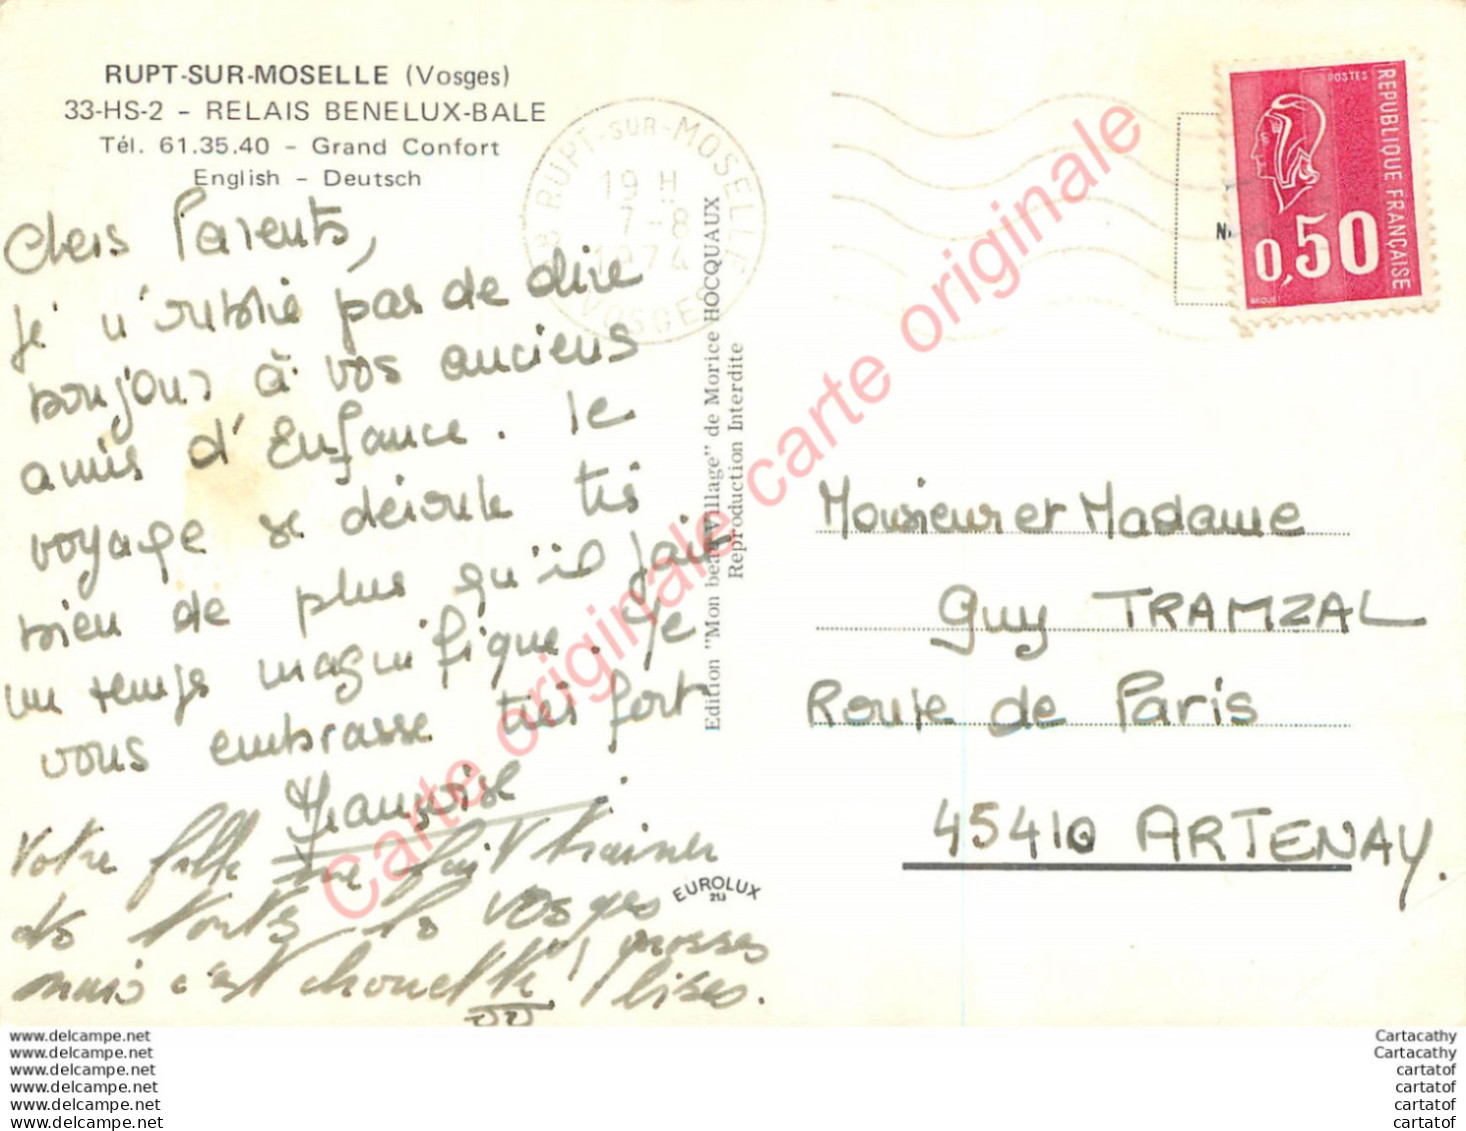 RUPT-SUR-MOSELLE (Vosges)
33-HS-2 - RELAIS BENELUX-BALE
Tél. 61.35.40 - Grand Confort
English - Deutsch
Chers Parents,
Je n'oublie pas de dire
bonjour à vos anciens
amis d'Enfance. le
voyage se déroule très
bien de plus qu'il fait
un temps magnifique. Je
vous embrasse très fort
Françoise
Votre fille fait trainer
de toutes les Vosges
mais c'est chouette! grosses
bises.
88 RUPT-SUR-MOSELLE
19 H
7-8
1974
VOSGES
Edition "Mon beau Village" de Morice HOCQUAUX
Reproduction Interdite
EUROLUX
POSTES
REPUBLIQUE FRANÇAISE
0,50
BEQUET
Monsieur et Madame
Guy TRAMZAL
Route de Paris
45410 ARTENAY.
Carte originale carte originale carte originale
www.delcampe.net
www.delcampe.net
www.delcampe.net
www.delcampe.net
www.delcampe.net
www.delcampe.net
Cartacathy
Cartacathy
cartatof
cartatof
cartatof
cartatof